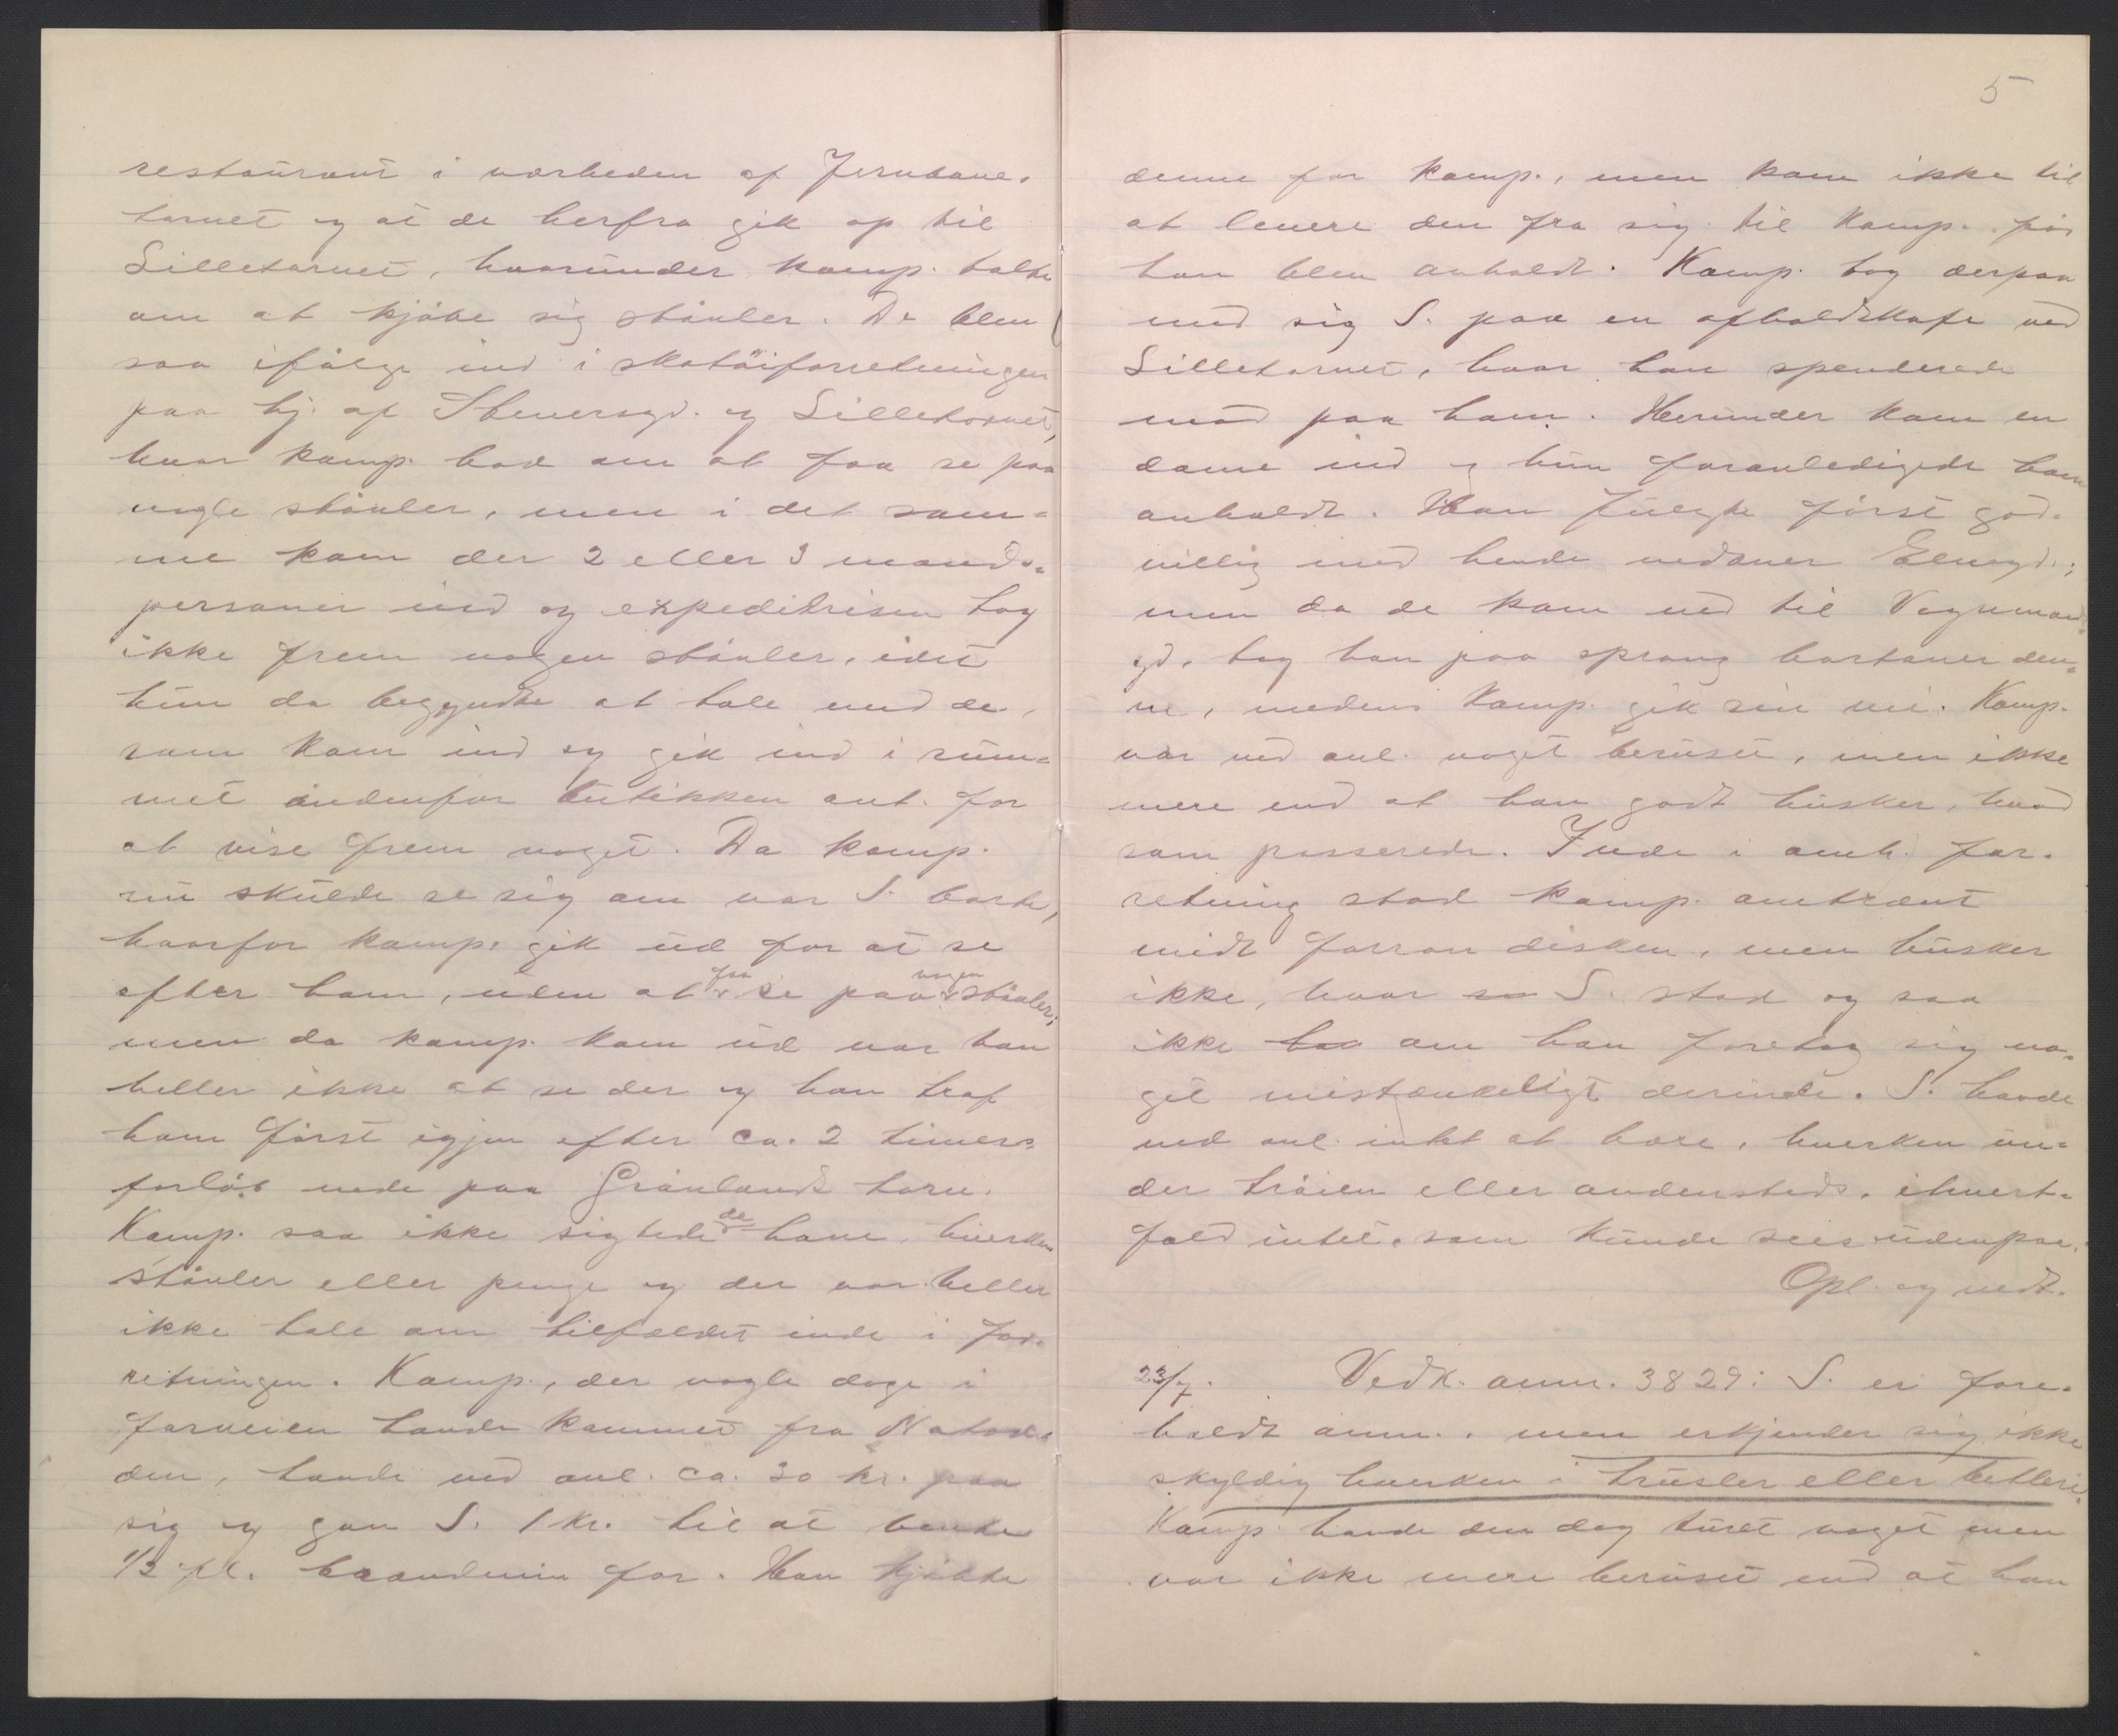 restaurant i nærheden af Jernbane-
tornet og at de herfra gik op til
Lilletorvet, hvorunder Kamp. talte
om at kjøbe sig støvler. De blev
saa ifølge ind i skotøiforretningen
paa hj. af Stenersgd. og Lilletorvet,
hvor Kamp. bad om at faa se paa
nogle støvler, men i det sam-
me kom der 2 eller 3 mands-
personer ind og expeditrisen tog
ikke frem nogen støvler, idet
hun da begyndte at tale med de,
som kom ind og gik ind i rum-
met indenfor butikken ant. for
at vise frem noget. Da Kamp.
nu skulde se sig om var S. borte,
hvorfor Kamp. gik ud for at se
efter ham, uden at faa se paa nogen støvler;
men da Kamp. kom ud var han
heller ikke at se der og han traf
ham først igjen efter ca. 2 timers
forløb nede paa Grønlands torv.
Kamp. saa ikke sigtede da have hverken
støvler eller penge og der var heller
ikke tale om tilfældet inde i for-
retningen. Kamp., der nogle dage i
forveien havde kommet fra Notod-
den, havde ved anl. ca. 30 kr. paa
sig og gav S. 1 kr. til at hente
1/2 fl. brændevin for. Han kjøbte
5
denne for Kamp., men kom ikke til
at levere den fra sig til Kamp. før
han blev anholdt. Kamp. tog derpaa
med sig S. paa en afholdskafe ved
Lilletorvet, hvor han spenderede
mad paa ham. Herunder kom en
dame ind og hun foranledigede ham
anholdt. Han fulgte først god-
villig med hende nedover Elvegd.;
men da de kom ned til Vognmand-
gd. tog han paa sprang bortover den-
ne, medens Kamp. gik sin vei. Kamp.
var ved anl. noget beruset, men ikke
mere end at han godt husker, hvad
som passerede. Inde i omh. for-
retning stod Kamp. omtrent
midt foran disken, men husker
ikke, hvor S. stod og saa
ikke om han foretog sig no-
get mistænkeligt derinde. S. havde
ved anl. intet at bære, hverken un-
der trøien eller andensteds, ihvert-
fald intet, som kunde sees udenpaa.
Opl. og vedt.
23/7. Vedk. anm. 3829: S. er fore-
holdt anm., men erkjender sig ikke
skyldig hverken i trusler eller betleri.
Kamp. havde den dag turet noget men
var ikke mere beruset end at han